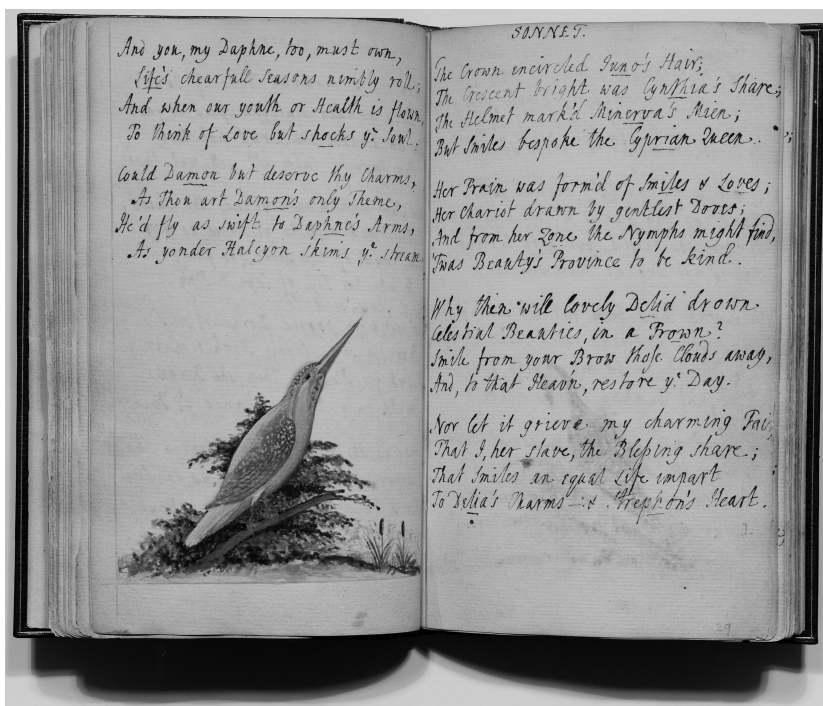 And you, my Daphne, too, must own,
Life's chearfull Seasons nimbly roll;
And when our youth or Health is flown,
To think of Love but shocks yͤ Soul.
Could Damon but deserve thy Charms,
As Thou art Damon's only Theme,
He'd fly as swift to Daphne's Arms,
As yonder Halcyon skims yͤ stream
SONNET.
The Crown encircled Juno's Hair;
The Crescent bright was Cynthia's Share;
The Helmet mark'd Minerva's Mien;
But Smiles bespoke the Cyprian Queen.
Her Train was form'd of Smiles & Loves;
Her Chariot drawn by gentlest Doves;
And from her Zone the Nymphs might find,
'Twas Beauty's Province to be kind.
Why then will lovely Delia drown
Celestial Beauties, in a Frown?
Smile from your Brow those Clouds away,
And, to that Heavn, restore yͤ Day.
Nor let it grieve my charming Fair
That I, her slave, the Blessing share;
That Smiles an equal Life impart
To Delia's Charms & Strephon's Heart.
29